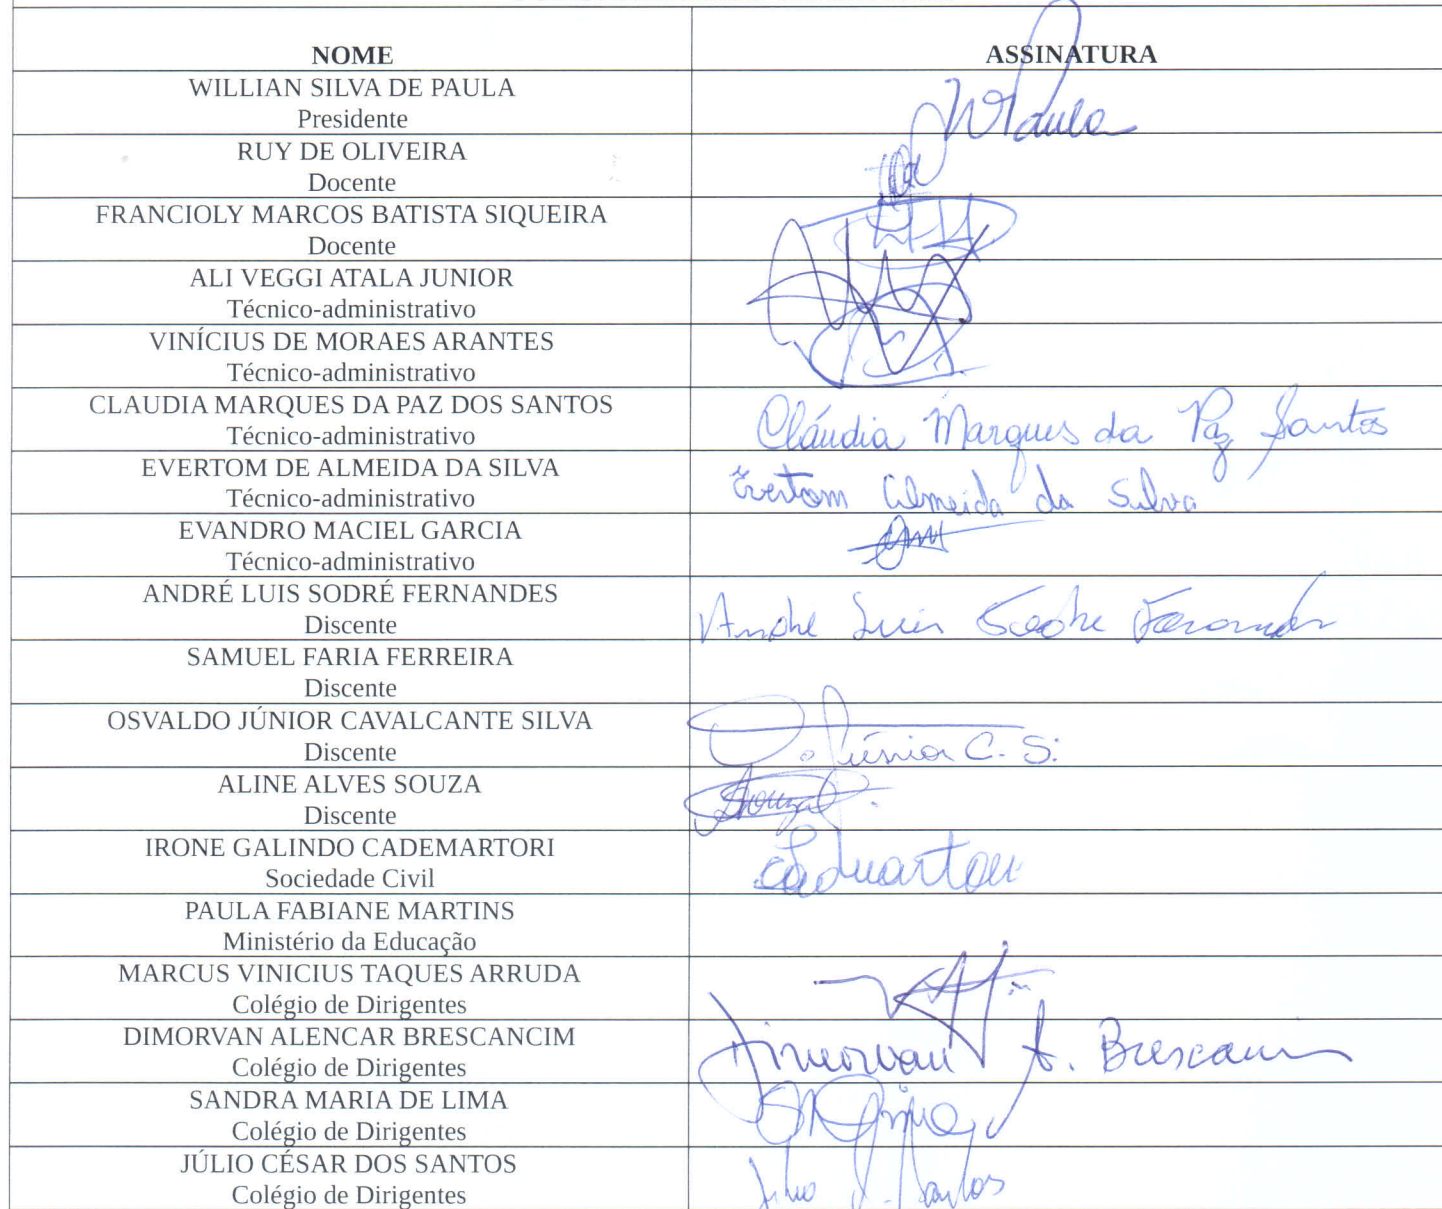 NOME ASSINATURA
WILLIAN SILVA DE PAULA
Presidente
WPaula
RUY DE OLIVEIRA
Docente
FRANCIOLY MARCOS BATISTA SIQUEIRA
Docente
ALI VEGGI ATALA JUNIOR
Técnico-administrativo
VINÍCIUS DE MORAES ARANTES
Técnico-administrativo
CLAUDIA MARQUES DA PAZ DOS SANTOS
Técnico-administrativo
Cláudia Marques da Paz Santos
EVERTOM DE ALMEIDA DA SILVA
Técnico-administrativo
Evertom Almeida da Silva
EVANDRO MACIEL GARCIA
Técnico-administrativo
ANDRÉ LUIS SODRÉ FERNANDES
Discente
Andre Luis Sodre Fernandes
SAMUEL FARIA FERREIRA
Discente
OSVALDO JÚNIOR CAVALCANTE SILVA
Discente
O. Júnior C. S.
ALINE ALVES SOUZA
Discente
Souza
IRONE GALINDO CADEMARTORI
Sociedade Civil
PAULA FABIANE MARTINS
Ministério da Educação
MARCUS VINICIUS TAQUES ARRUDA
Colégio de Dirigentes
DIMORVAN ALENCAR BRESCANCIM
Colégio de Dirigentes
Dimorvan A. Brescan
SANDRA MARIA DE LIMA
Colégio de Dirigentes
JÚLIO CÉSAR DOS SANTOS
Colégio de Dirigentes
Júlio C. Santos